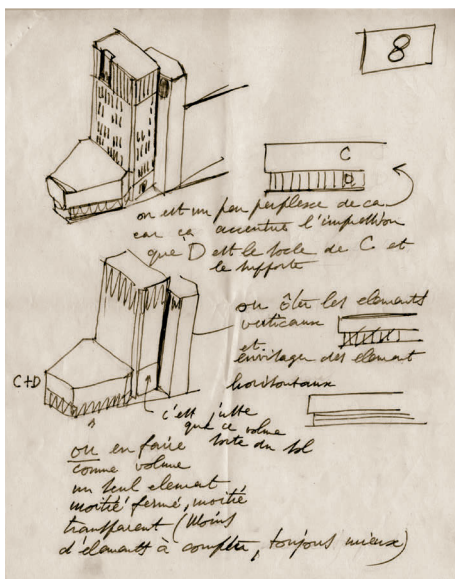 8
C
D
on est un peu perplexe de ca
car ça accentue l'impression
que D est le socle de C et
le supporte
ou ôter les elements
verticaux
et
envisager des element
horizontaux
C+D
c'est juste
que ce volume
sorte du sol
ou en faire
comme volume
un seul element
moitié fermé, moitié
transparent (moins
d'elements à compter, toujours mieux)